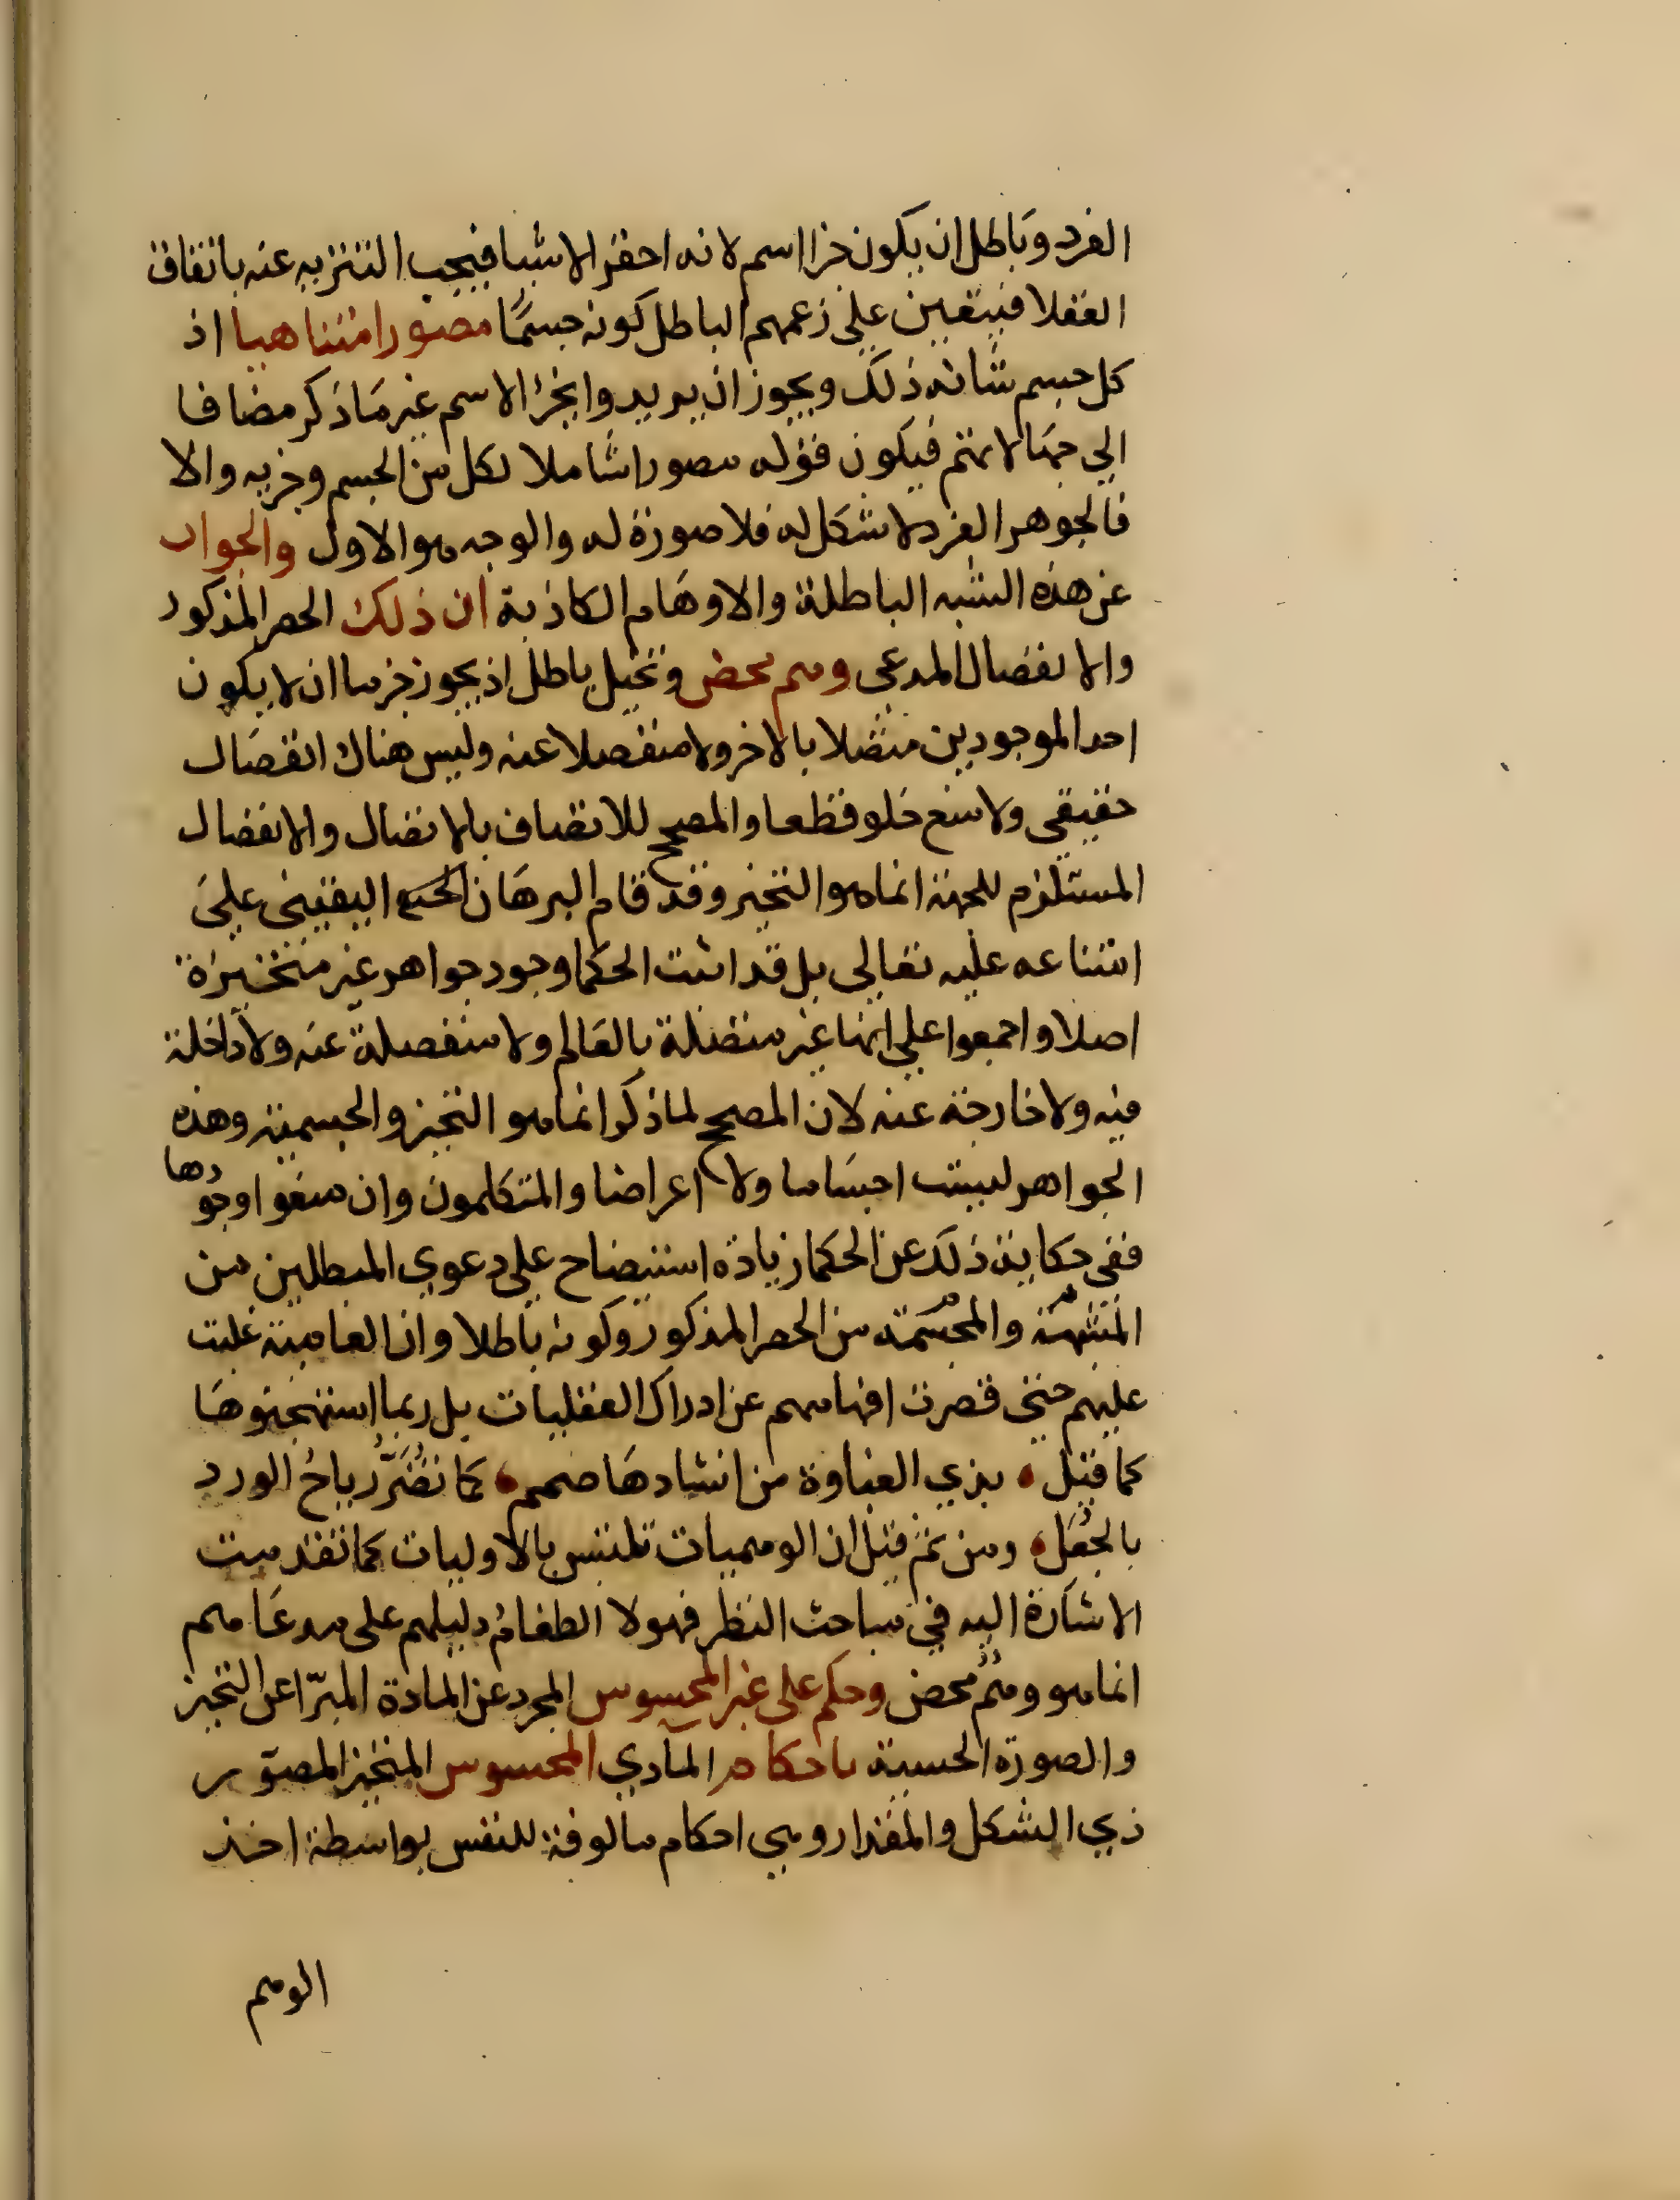 الفرد وباطل ان يكون جزا اسم لانه احقر الاشيا فيجب التنزيه عنه باتفاق
العقلا فيتعين على زعمهم الباطل كونه جسمًا مصورا متناهيا اذ
كل جسم شانه ذلك ويجوز ان يريدوا بجزء الاسم غير مَا ذكر مضافا
الي جهَة لا تتم فيكون قوله مصورا شاملا لكل من الجسم وجزيه والا
فالجوهر الفرد لا شكل له فلا صورة له والوجه هو الاول والجواب
عن هذه الشبه الباطلة والاوهَام الكاذبة ان ذلك الحصر المذكور
والانفصال المدعي وهم محض وتخيل باطل اذ يجوز جزما ان لا يكون
احد الموجودين متصلا بالاخر ولا منفصلا عنه وليس هناك انفصَال
حقيقي ولا منع خلو قطعا والمصحح للاتصاف بالاتصال والانفصال
المستلزم للجهة انما هو التحيز وقد قام البرهَان اليقيني علىَ
امتناعه عليه تعالي بل قد اثبت الحكما وجود جواهر غير متحيزة
اصلا واجمعوا علي انها غير متصلة بالعَالم ولا منفصلة عنه ولا داخلة
فيه ولا خارجة عنه لان المصحح لما ذكر انما هو التحيز والجسمية وهذه
الجواهر ليست اجسَاما ولا اعراضا والمتكلمون وان منعوا وجودها
ففي حكاية ذلك عن الحكما زيادة استيضاح علي دعوي المبطلين من
المشبهة والمجسمة من الحصر المذكور وكونه باطلا وان العامية غلبت
عليهم حتى قصرت افهامهم عن ادراك العقليات بل ربما استهجنوهَا
كما قيل ، بذي الغباوة من انشادهَا صمم ، كما تضُرُّ رياحُ الورد
بالجُعَل ، ومن ثم قيل ان الوهميات تلتبس بالاوليات كما تقدمت
الاشارة اليه في مباحث النظر فهولا الطغام دليلهم على مدعَاهم
انما هو وهْمٌ محض وحكم على غير المحسوس المجرد عن المادة المبرّا عن التحيز
والصورة الحسية باحكام المادي المحسوس المتحيز المصوّر
ذي الشكل والمقدار وهي احكام مالوفة للنفس بواسطة اخذ
الوهم